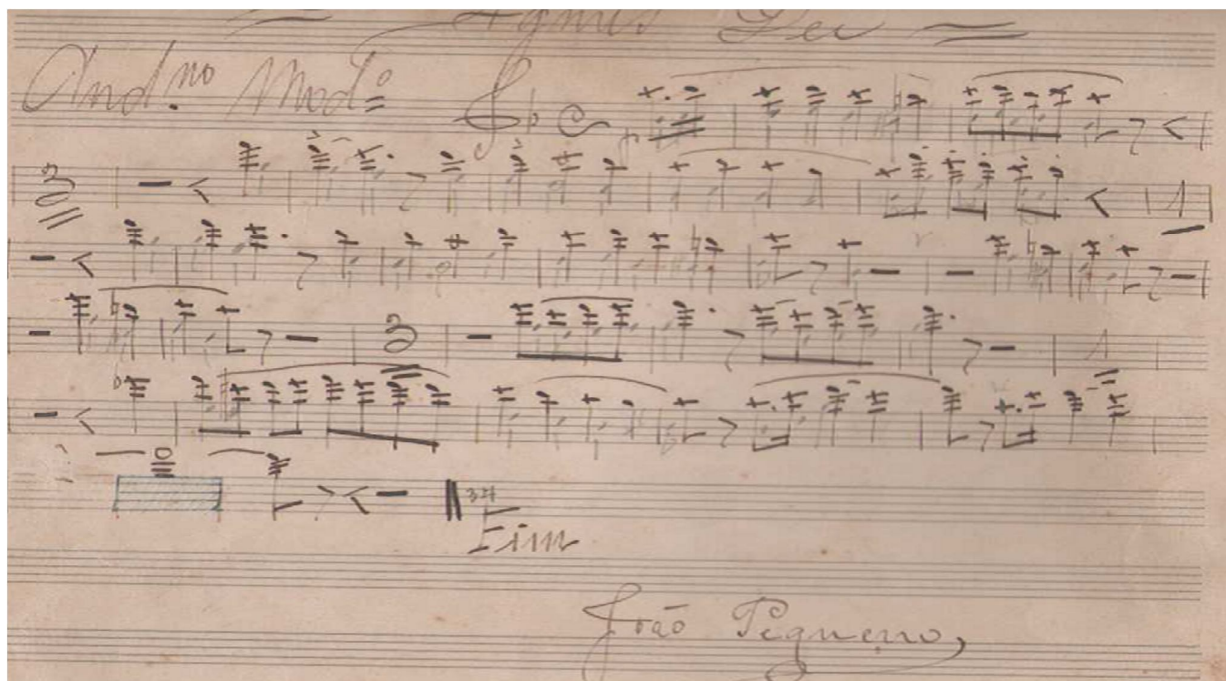 Agnus Dei
And.no Mod.o
3
1
3
1
34
Fim
João Pequeno,